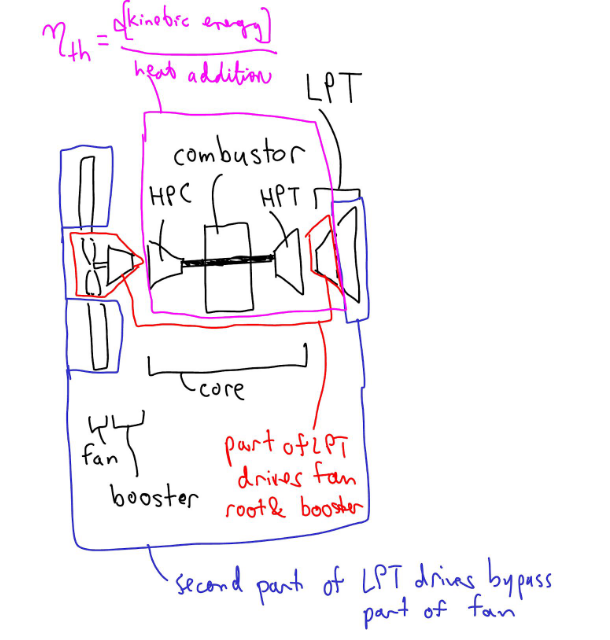 ηth = Δ[kinetic energy]
heat addition
LPT
combustor
HPC
HPT
core
fan
booster
part of LPT
drives fan
root & booster
second part of LPT drives bypass
part of fan